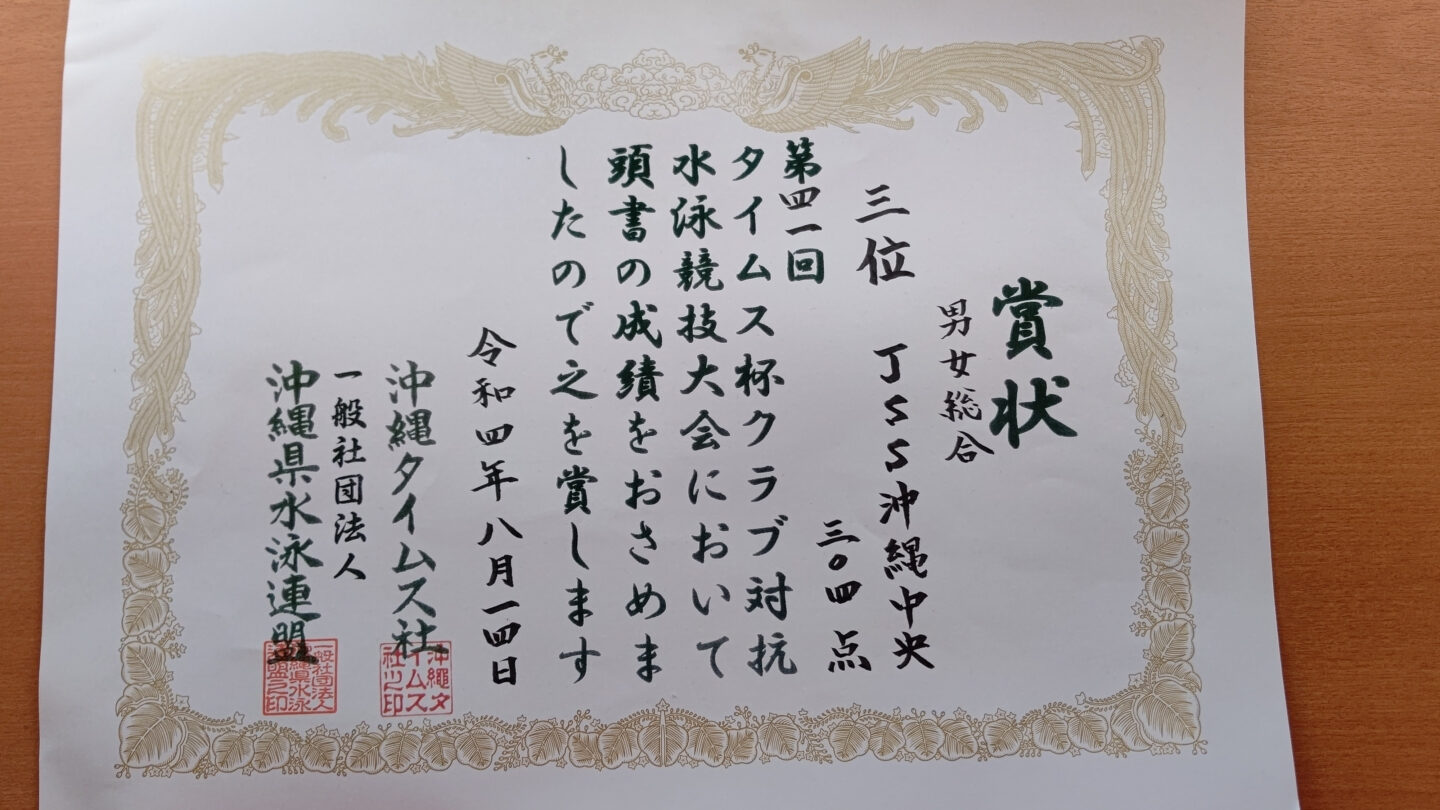 賞状
男女総合
三位 JSS沖縄中央
三〇四点
第四一回
タイムス杯クラブ対抗
水泳競技大会において
頭書の成績をおさめま
したので之を賞します
令和四年八月一四日
沖縄タイムス社
一般社団法人
沖縄県水泳連盟
沖縄タ
イムス
社之印
一般社団法人
沖縄県水泳
連盟之印